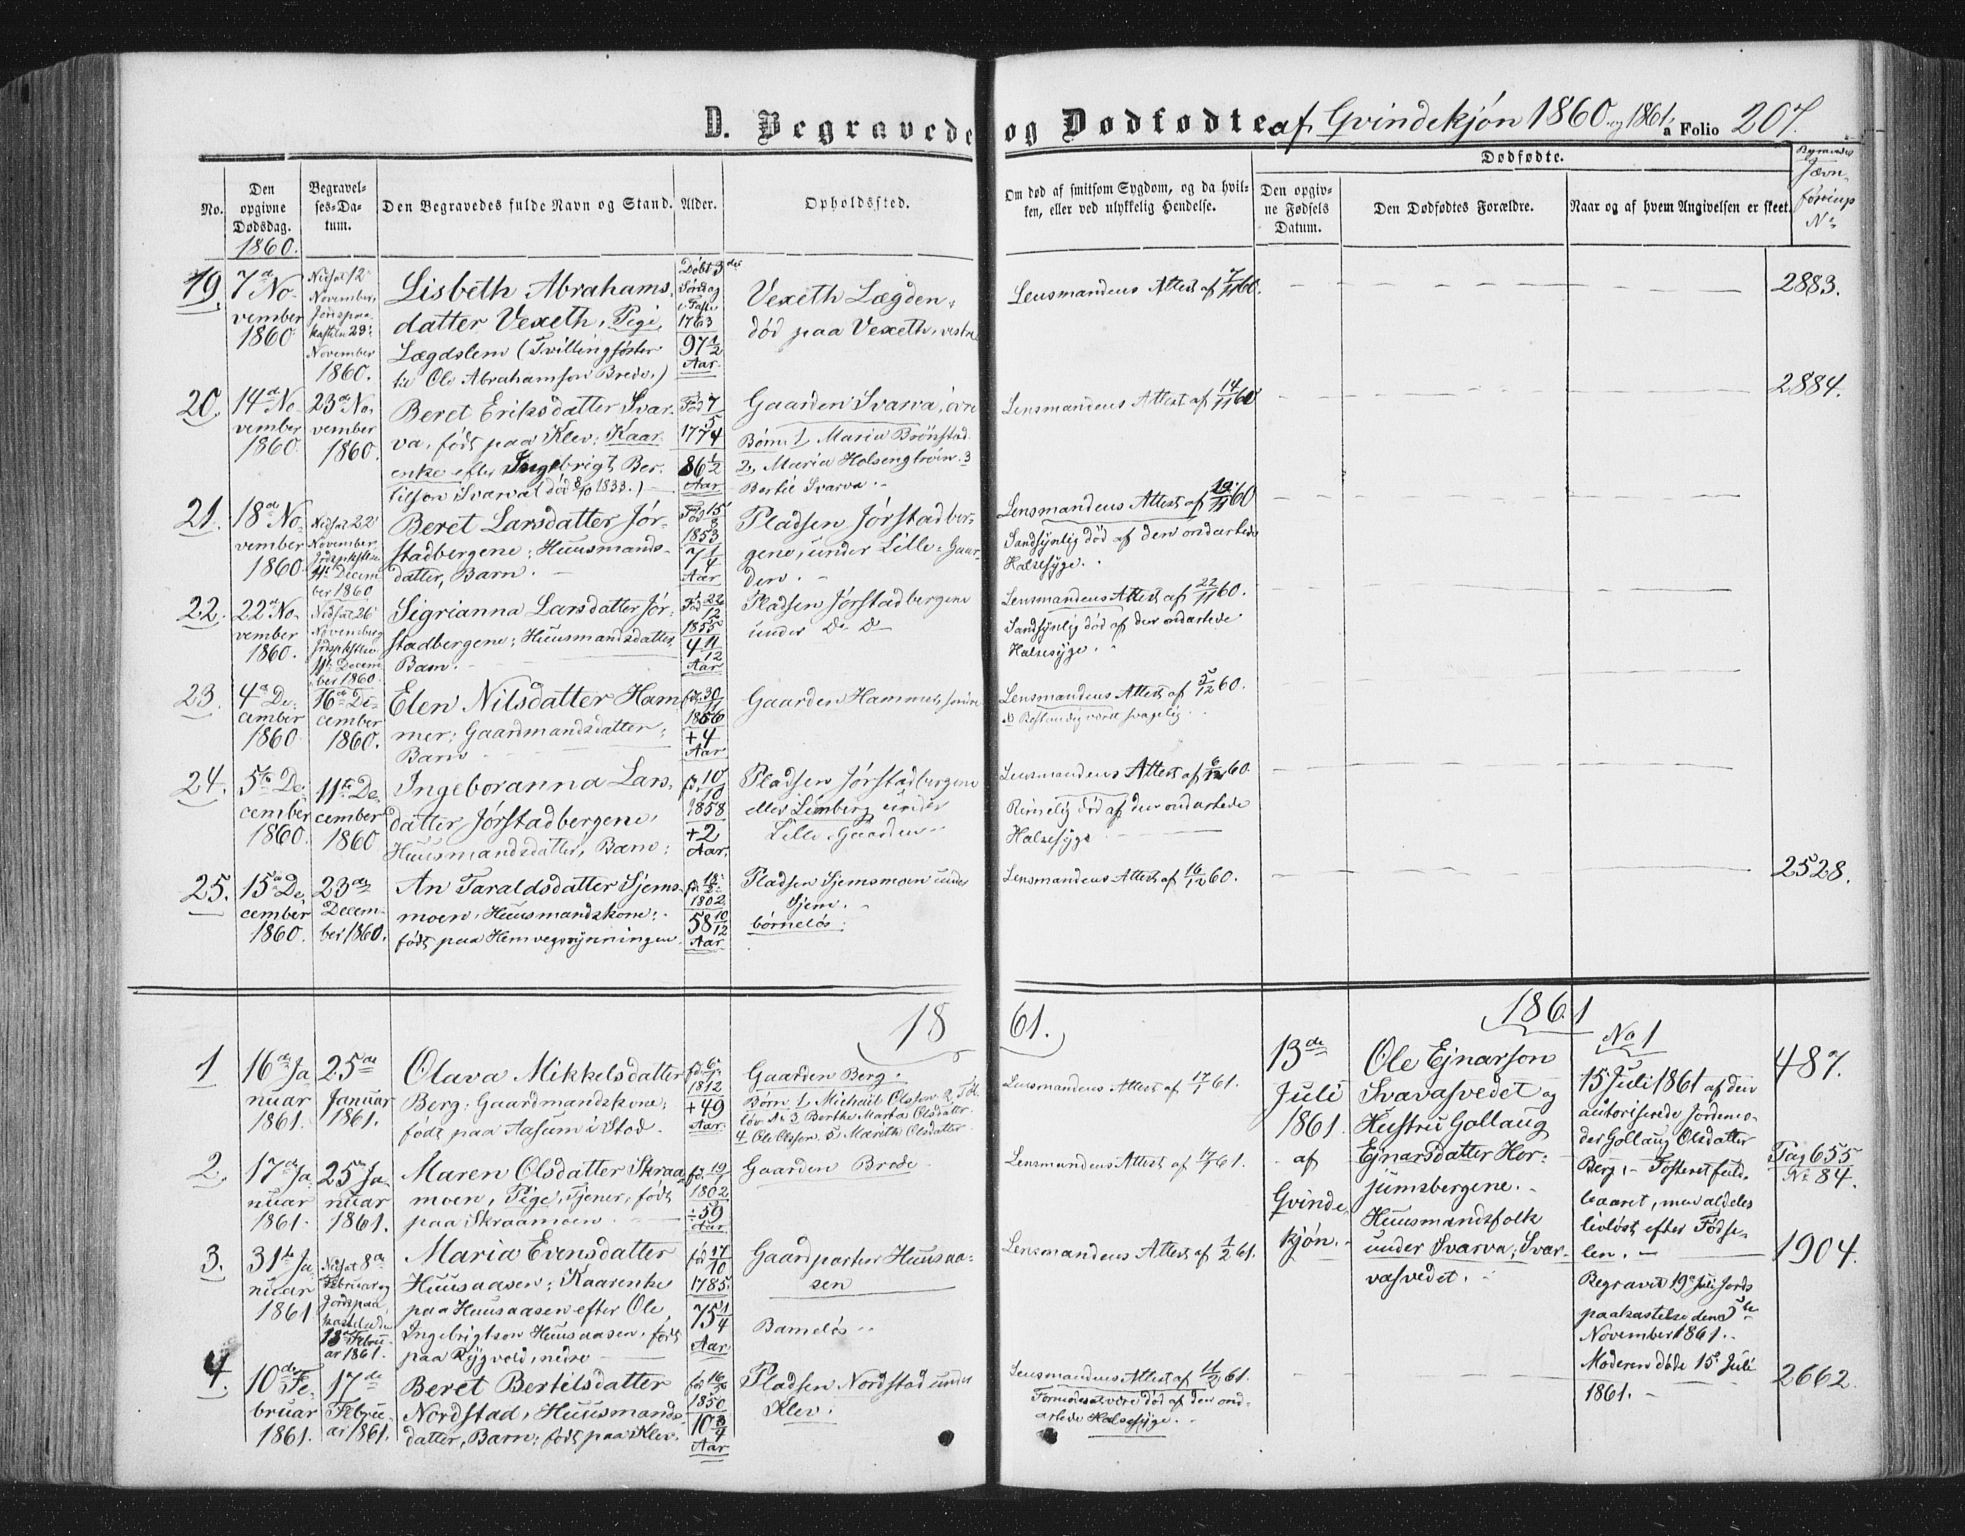 D. Begravede og Dødfødte af Qvindekjøn 1860 og 1861. a Folio 207.
No.
Den opgivne Dødsdag.
Begravelses-Datum.
Den Begravedes fulde Navn og Stand.
Alder.
Opholdssted.
Om død af smitsom Sygdom, og da hvilken, eller ved ulykkelig Hendelse.
Dødfødte.
Den opgivne Fødsels Datum.
Den Dødfødtes Forældre.
Naar og af hvem Angivelsen er skeet.
Jævnførings No
1860.
19. 7de November 1860
Nedsat 12 November, Jordspaakastelse 29 November 1860.
Lisbeth Abrahams-
datter Vexeth, Pige,
Lægdslem (Tvillingsøster
til Ole Abrahamson Brede.)
Døbt 3die Søndag i Faste 1763
97 1/2 Aar.
Vexeth Lægden,
død paa Vexeth, vestre
Lensmandens Attest af 7/11 60.
2883.
20. 14de November 1860.
23de November 1860.
Beret Eriksdatter Svar-
va, født paa Klev; Kaar-
enke efter Ingebrigt Ber-
tilson Svarva (død 8/10 1833.)
Fød 7/5 1774
86 1/2 Aar
Gaarden Svarva, øvre
Børn: 1, Maria Brønstad
2, Maria Holsengtrøen 3
Bertil Svarva.
Lensmandens Attest af 14/11 60
2884.
21. 18de November 1860
Nedsat 22 November Jordspkstlse 11te December 1860
Beret Larsdatter Jør-
stadbergene; Huusmands-
datter, Barn.
Fød 15/8 1853
7 1/4 Aar
Pladsen Jørstadber-
gene, under Lille-Gaar-
den.
Lensmandens Attest af 19/11 60
Sandsynlig død af den ondartede
Halssyge.
22. 22de November 1860.
Nedsat 26 November Jordspkstlse 11te December 1860.
Sigrianna Larsdatter Jør-
stadbergene; Huusmandsdatter,
Barn.
Fød 22/12 1855
4 11/12 Aar
Pladsen Jørstadbergene
under Do Do
Lensmandens Attest af 22/11 60.
Sandsynlig død af den ondartede
Halssyge.
23. 4de December 1860
16de December 1860.
Elen Nilsdatter Ham-
mer; Gaardmandsdatter,
Barn
fd. 30/11 1856
+4 Aar
Gaarden Hammer, søndre
Lensmandens Attest af 5/12 60.
Bestandig været svagelig.
24. 5te December 1860.
11te December 1860
Ingeboranna Lars-
datter Jørstadbergene,
Huusmandsdatter, Barn.
fd. 10/10 1858
+2 Aar.
Pladsen Jørstadbergene
eller Limberg under
Lille-Gaarden
Lensmandens Attest af 6/12 60.
Rimelig død af den ondartede
Halssyge
25. 15de December 1860.
23de December 1860.
An Taraldsdatter Sjems-
moen, Huusmandskone;
født paa Hemvegsrynningen
fd. 18/2 1802
58 10/12 Aar
Pladsen Sjemsmoen under
Sjem.
børneløs.
Lensmandens Attest af 16/12 60.
2528.
1861.
1 16de Januar 1861.
25de Januar 1861.
Olava Mikkelsdatter
Berg; Gaardmandskone;
født paa Aasum i Stod.
fd. 6/1 1812
+49 Aar
Gaarden Berg.
Børn 1 Michael Olsson 2,
3 Berthe Marta Olsdatter
4 Ole Olsson 5 Mareth Olsdatter
Lensmandens Attest af 17/1 61.
487.
2. 17de Januar 1861.
25 Januar 1861.
Maren Olsdatter Skraa-
moen, Pige, Tjener, født
paa Skraamoen
fd. 19/7 1802
÷59 Aar
Gaarden Brede
Lensmandens Attest af 17/1 61.
Pag 655 No 84.
3. 31te Januar 1861
Nedsat 8de Februar og Jordspaakastet den 18de Februar 1861.
Maria Evensdatter
Huusaasen; Kaarenke
paa Huusaasen efter Ole
Ingebrigtson Huusaasen, født
paa Rygvold, nedre
fød 17/10 1785
75 1/4 Aar
Gaardparten Huusaa-
sen
Barneløs
Lensmandens Attest af 1/2 61.
1904.
4. 10de Februar 1861.
17de Februar 1861.
Beret Bertilsdatter
Nordstad, Huusmands-
datter, Barn; født paa Klev.
fd. 16/5 1850
10 3/4 Aar
Pladsen Nordstad under
Klev.
Lensmandens Attest af 11/2 61.
Formodes at være død af den ond-
artede Halssyge.
2662
1861
13de
Juli
1861.
af
Qvinde-
kjøn.
Ole Ejnarson
Svavasvedet og
Hustru Gollaug
Ejnarsdatter Hor-
jumsbergene.
Huusmandsfolk
under Svarva; Svar-
vasvedet.
No 1
15 Juli 1861 af den
autoriserede Jordemo-
der Gollaug Olsdatter
Berg; - Fosteret fuld-
baaret, men aldeles
livløst efter Fødse-
len.
Begravet 19de Juli Jords
paakastelse den 5te
November 1861.
Moderen døde 15de Juli
1861.